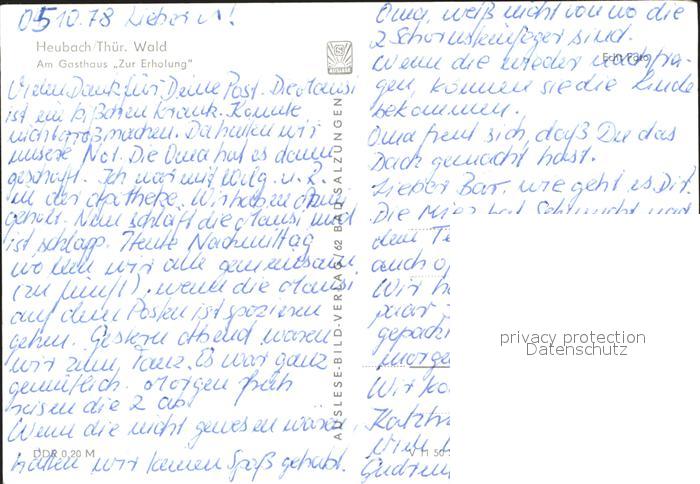 05.10.78 Lieber
Heubach/Thür. Wald
Am Gasthaus „Zur Erholung"
Vielen Dank für Deine Post. Die
ist ein bißchen krank. Konnte
nicht groß machen. Da hatten wir
unsere Not. Die Oma hat es dann
geschafft. Ich war mit u.
in der Apotheke. Wir haben
geholt. Nun schläft die und
ist schlapp. Heute Nachmittag
wollen wir alle gemeinsam
(zu fünft), wenn die
auf dem Posten ist spazieren
gehen. Gestern Abend waren
wir zum Tanz. Es war ganz
gemütlich. Morgen früh
reisen die 2 ab.
Wenn die nicht gewesen wären,
hätten wir keinen Spaß gehabt.
DDR 0,20 M
AUSLESE-BILD-VERLAG, 62 BAD SALZUNGEN
Oma, weiß nicht von wo die
2 Schornsteinfeger sind.
Echt Foto
Wenn die wieder nachfra-
gen, können sie die Runde
bekommen.
Oma freut sich, daß Du das
Dach gemacht hast.
Lieber wie geht es Dir.
Die hat Sehnsucht nach
dem
auch
Wir
paar
gepack
morge
Wir
V 11 50
privacy protection
Datenschutz